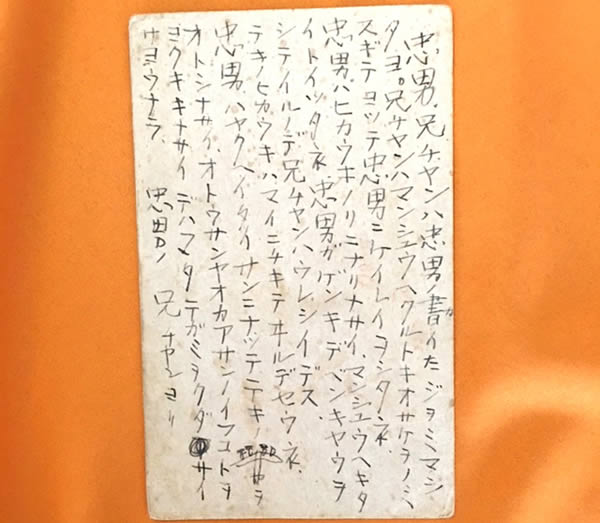 忠男、兄チヤンハ忠男ノ書イたジヨミマシ
タヨ。兄チヤンハマンシユウヘクルトキオサケヲノミ
スギテヨツテ忠男ニケイレイヨシタネ、
忠男ハヒカウキノリニナリナサイ、マンシユウヘキタ
イトイツタネ、忠男ガゲンキデベンキヤウヲ
シテイルノデ兄チヤンハウレシイデス、
テキノヒカウキハマイニチキテヰルデセウネ、
忠男ハヤクヘイタイサンニナツテテキノヲ
オトシナサイ、オトウサンヤオカアサンノイフコトヲ
ヨクキキナサイデハマタテガミヲクダサイ
サヨウナラ 忠男ノ兄チヤンヨリ